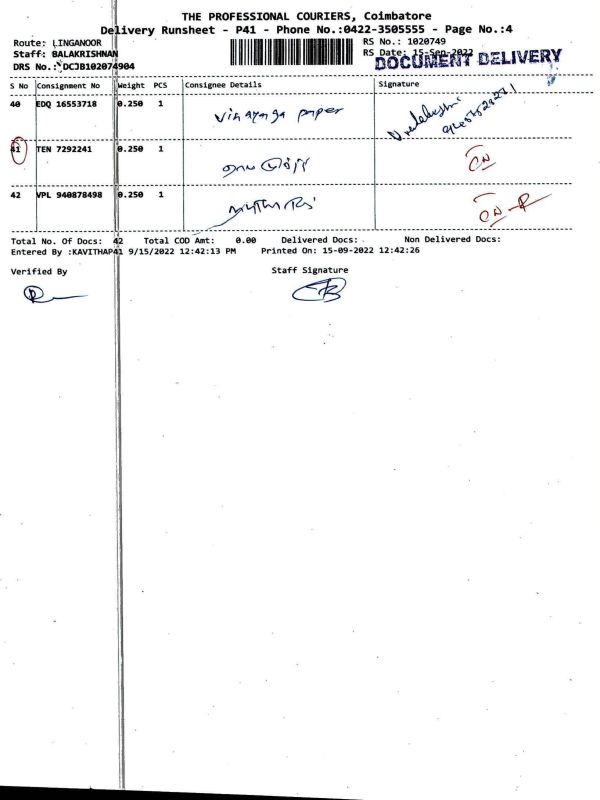 THE PROFESSIONAL COURIERS, Coimbatore
Delivery Runsheet - P41 - Phone No.:0422-3505555 - Page No.:4
Route: LINGANOOR
RS No.: 1020749
Staff: BALAKRISHNAN
RS Date: 15-Sep-2022
DRS No.: DCJB102074904
DOCUMENT DELIVERY
S No Consignment No Weight PCS Consignee Details Signature
40 EDQ 16553718 0.250 1 Vinayaga paper
41 TEN 7292241 0.250 1
42 VPL 940878498 0.250 1
Total No. Of Docs: 42 Total COD Amt: 0.00 Delivered Docs: Non Delivered Docs:
Entered By :KAVITHAP41 9/15/2022 12:42:13 PM Printed On: 15-09-2022 12:42:26
Verified By Staff Signature